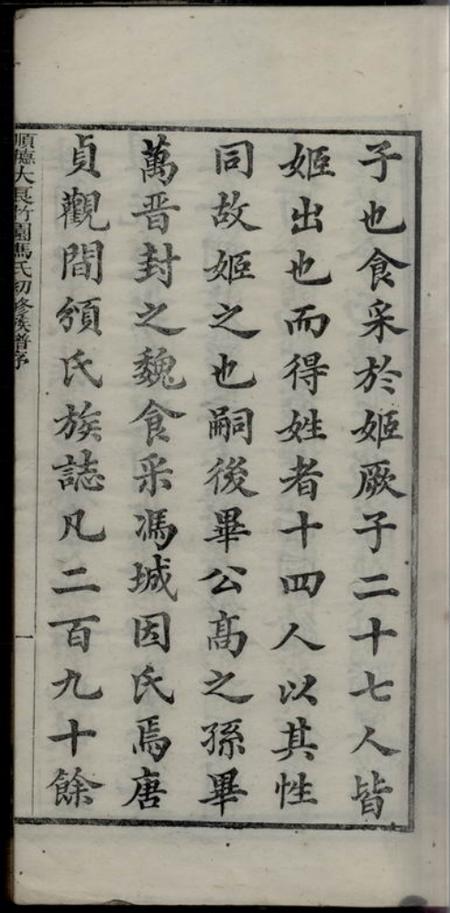 子也食采於姬厥子二十七人皆
姬出也而得姓者十四人以其性
同故姬之也嗣後畢公高之孫畢
萬晋封之魏食采馮城因氏焉唐
貞觀間頒氏族誌凡二百九十餘
順德大良竹園馮氏初修族譜序
一